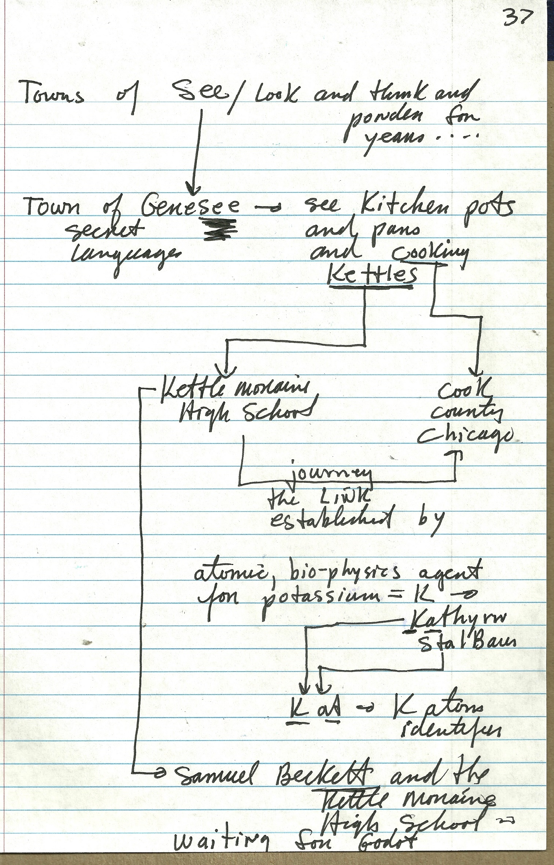 37
Towns of See/Look and think and
ponder for
years....
Town of Genesee → see Kitchen pots
secret and pans
languages and cooking
Kettles
Kettle moraine
High School
Cook
County
Chicago
journey
the LiNK
established by
atomic, bio-physics agent
for potassium = K →
Kathyrn
Stal'Baum
K at → K atom
identifier
Samuel Beckett and the
Kettle Moraine
High School =
Waiting for Godot